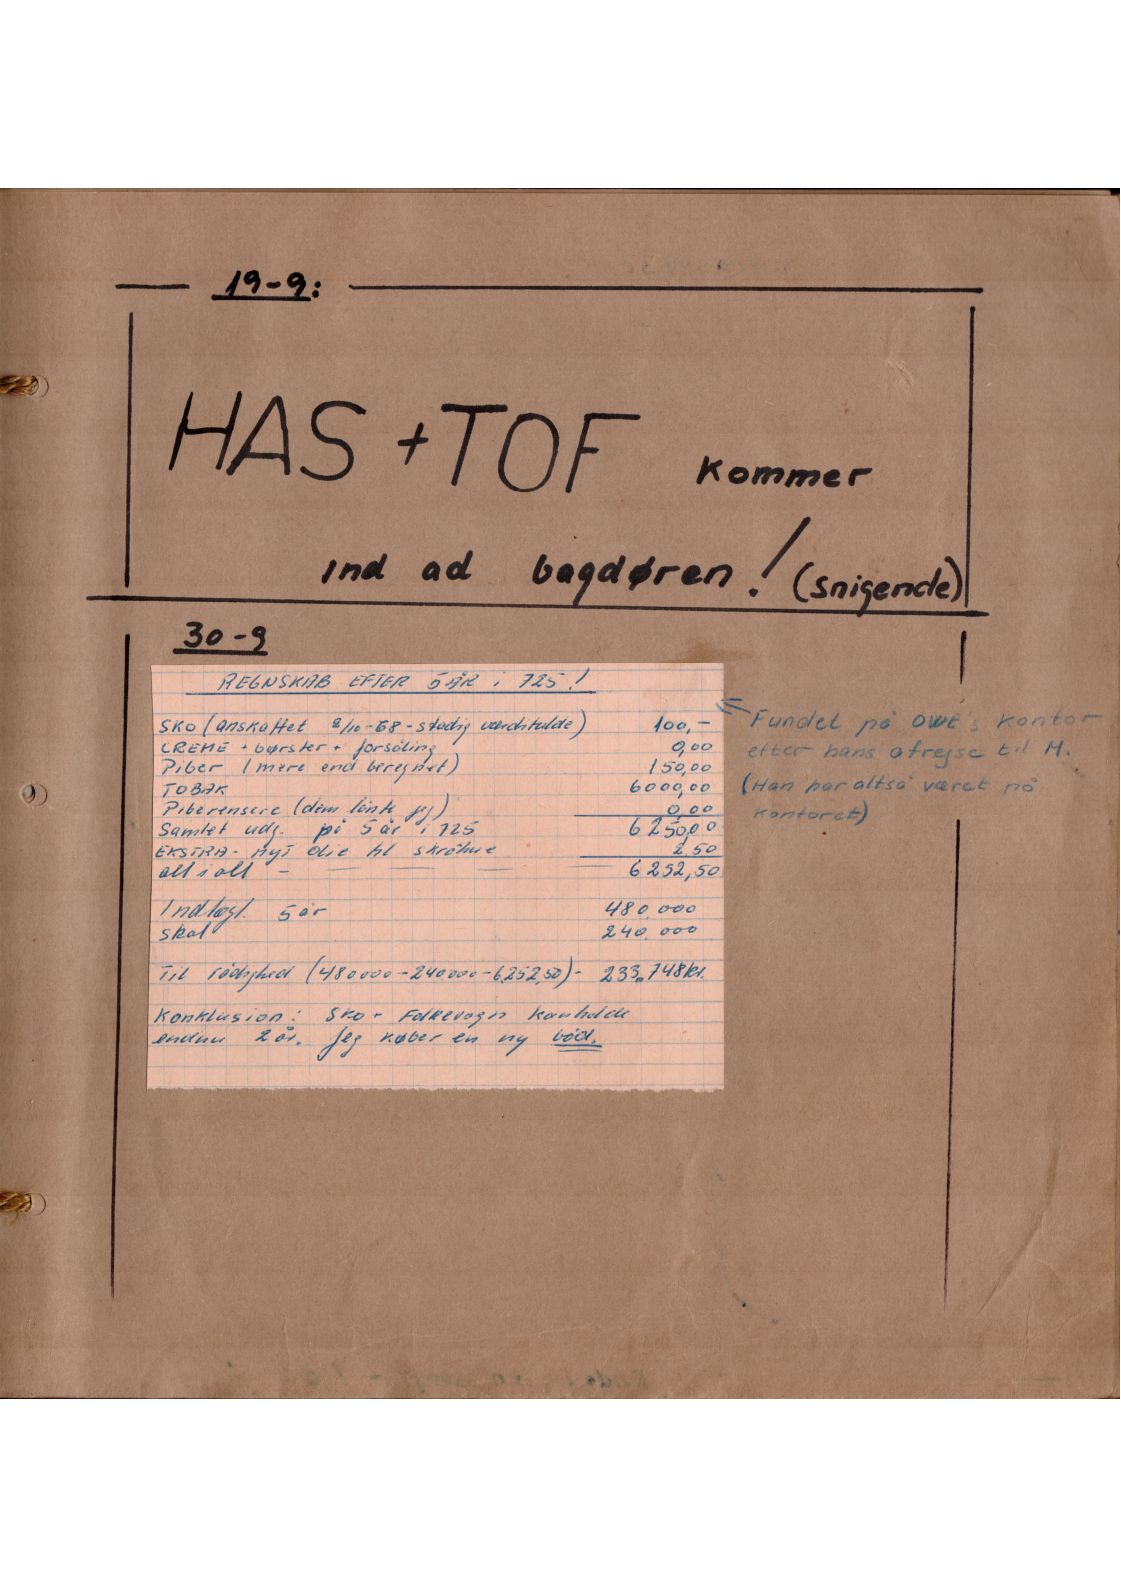 19-9:
HAS + TOF kommer
ind ad bagdøren! (snigende)
30-9
REGNSKAB EFTER 5 ÅR i 725!
SKO (anskaffet 2/10-68 - stadig værdifulde) 100,-
CREME + børster + forsåling 0,00
Piber (mere end beregnet) 150,00
TOBAK 6000,00
Piberensere (dem lånte jeg) 0,00
Samlet udg. på 5 år i 725 6250,00
EKSTRA - nyt olie til 2,50
alt i alt - 6252,50
Indtægt. 5 år 480.000
skat 240.000
Til rådighed (480000-240000-6252,50) - 233.748kr.
Konklusion: Sko + Folkevogn kan holde
endnu 2 år. Jeg køber en ny båd.
Fundet på OWE's kontor
efter hans afrejse til M.
(Han har altså været på
kontoret)